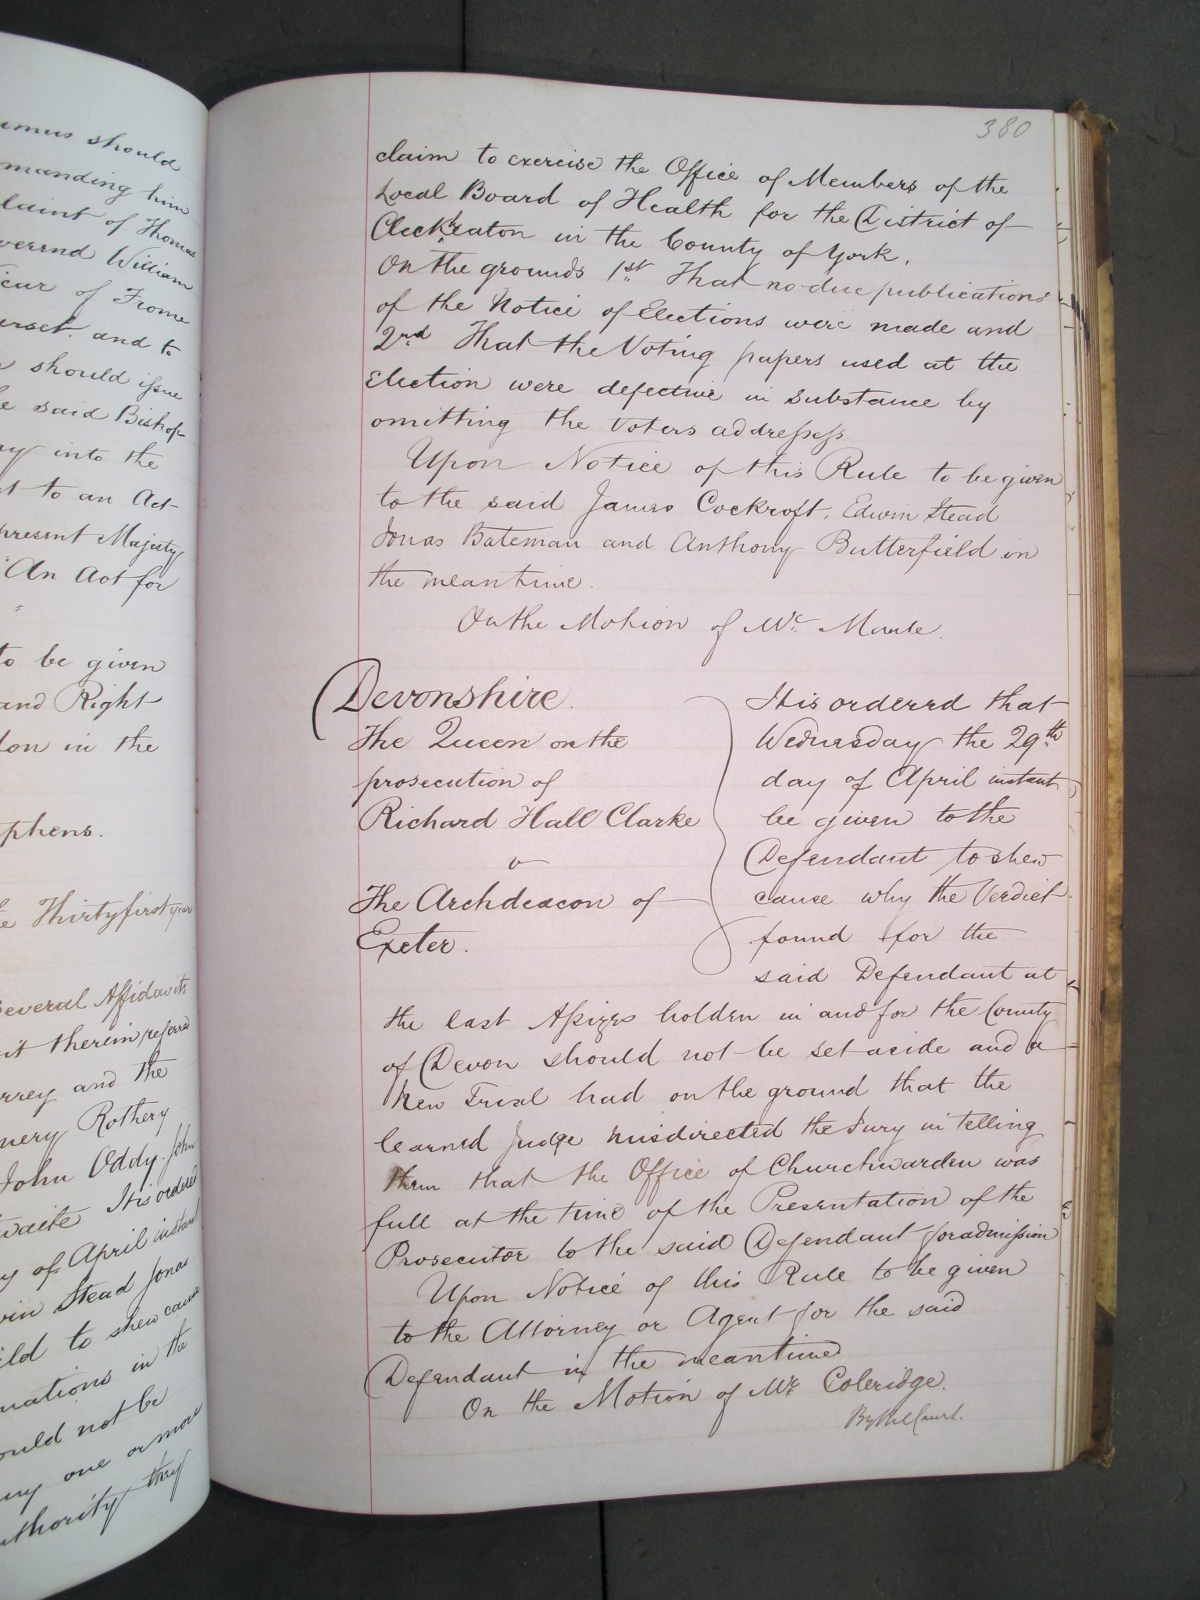 amus should
manding him
laint of Thomas
verend William
icar of Frome
erset. and to
should issue
e said Bishop
ay into the
t to an Act
present Majesty
"An Act for
to be given
and Right
don in the
phens.
e Thirtyfirst year
Several Affidavits
it therein referred
rrey and the
mery Rothery
John Oddy. John
waite It is ordered
y of April instant
win Stead Jonas
ild to shew cause
mations in the
ould not be
any one or more
uthority they
380
claim to exercise the Office of Members of the
Local Board of Health for the District of
Cleckheaton in the County of York.
On the grounds 1st That no due publications
of the Notice of Elections were made and
2nd That the Voting papers used at the
Election were defective in substance by
omitting the Voters address
Upon Notice of this Rule to be given
to the said James Cockroft, Edwin Stead
Jonas Bateman and Anthony Butterfield in
the meantime.
On the Motion of Mr. Maule.
Devonshire.
The Queen on the
prosecution of
Richard Hall Clarke
v
The Archdeacon of
Exeter.
It is ordered that
Wednesday the 29th
day of April instant
be given to the
Defendant to shew
cause why the Verdict
found for the
said Defendant at
the last Assizes holden in and for the County
of Devon should not be set aside and a
New Trial had on the ground that the
learned Judge misdirected the Jury in telling
them that the Office of Churchwarden was
full at the time of the Presentation of the
Prosecutor to the said Defendant for admission
Upon Notice of this Rule to be given
to the Attorney or Agent for the said
Defendant in the meantime
On the Motion of Mr. Coleridge.
By the Court.